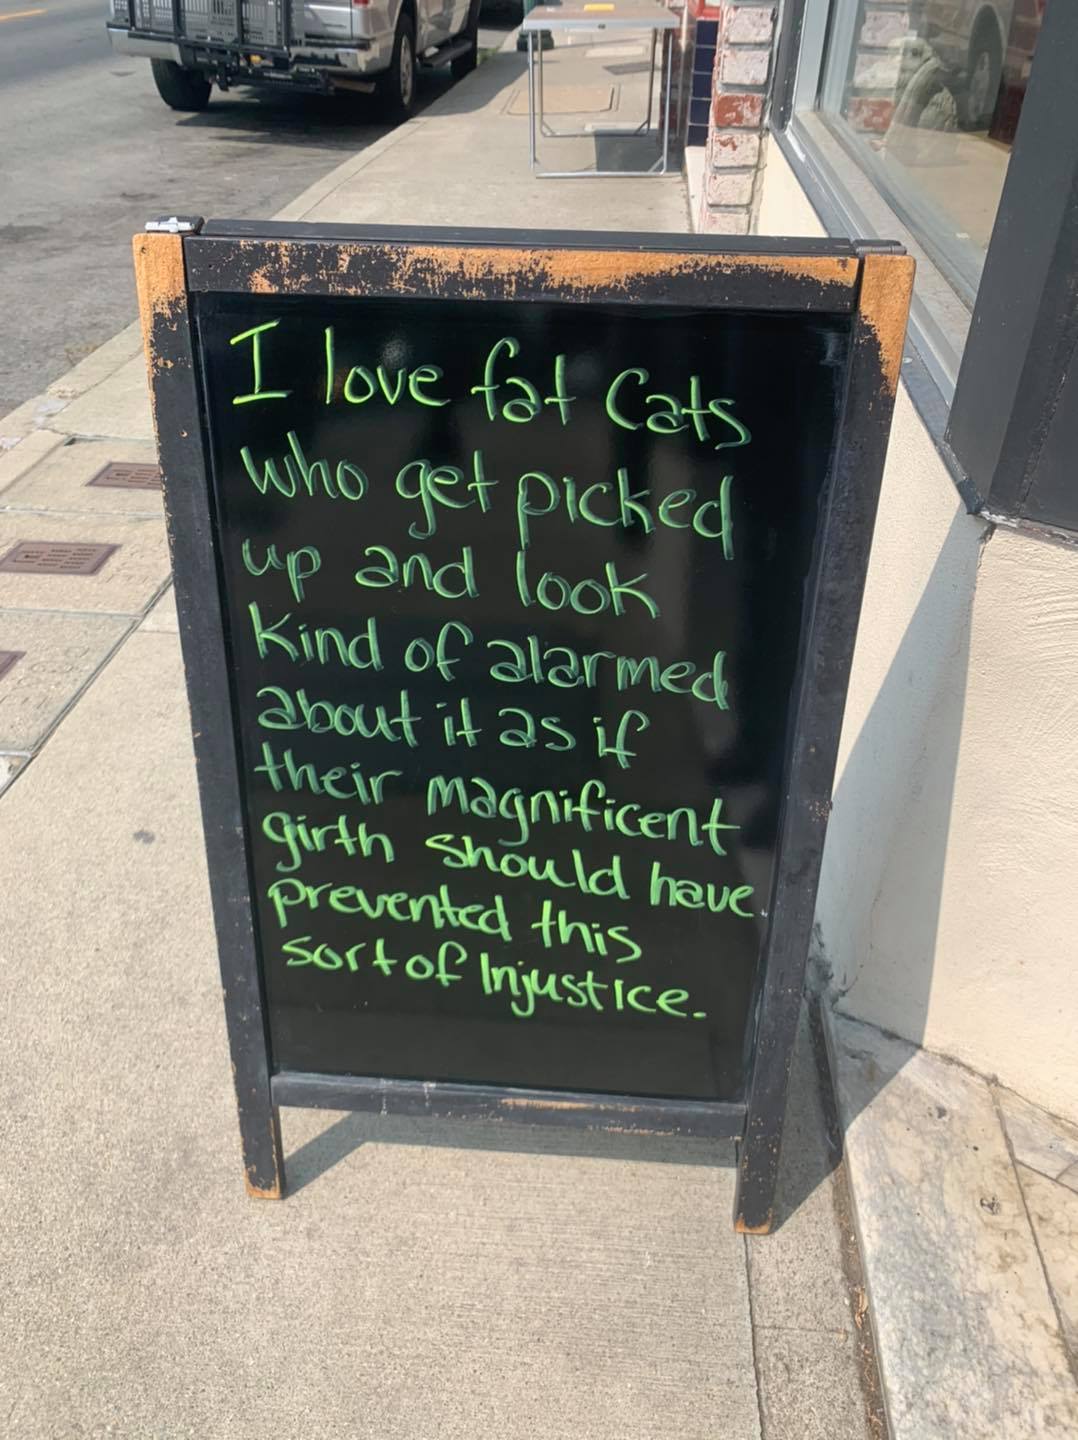 I love fat Cats
who get picked
up and look
kind of alarmed
about it as if
their magnificent
girth should have
prevented this
sort of Injustice.